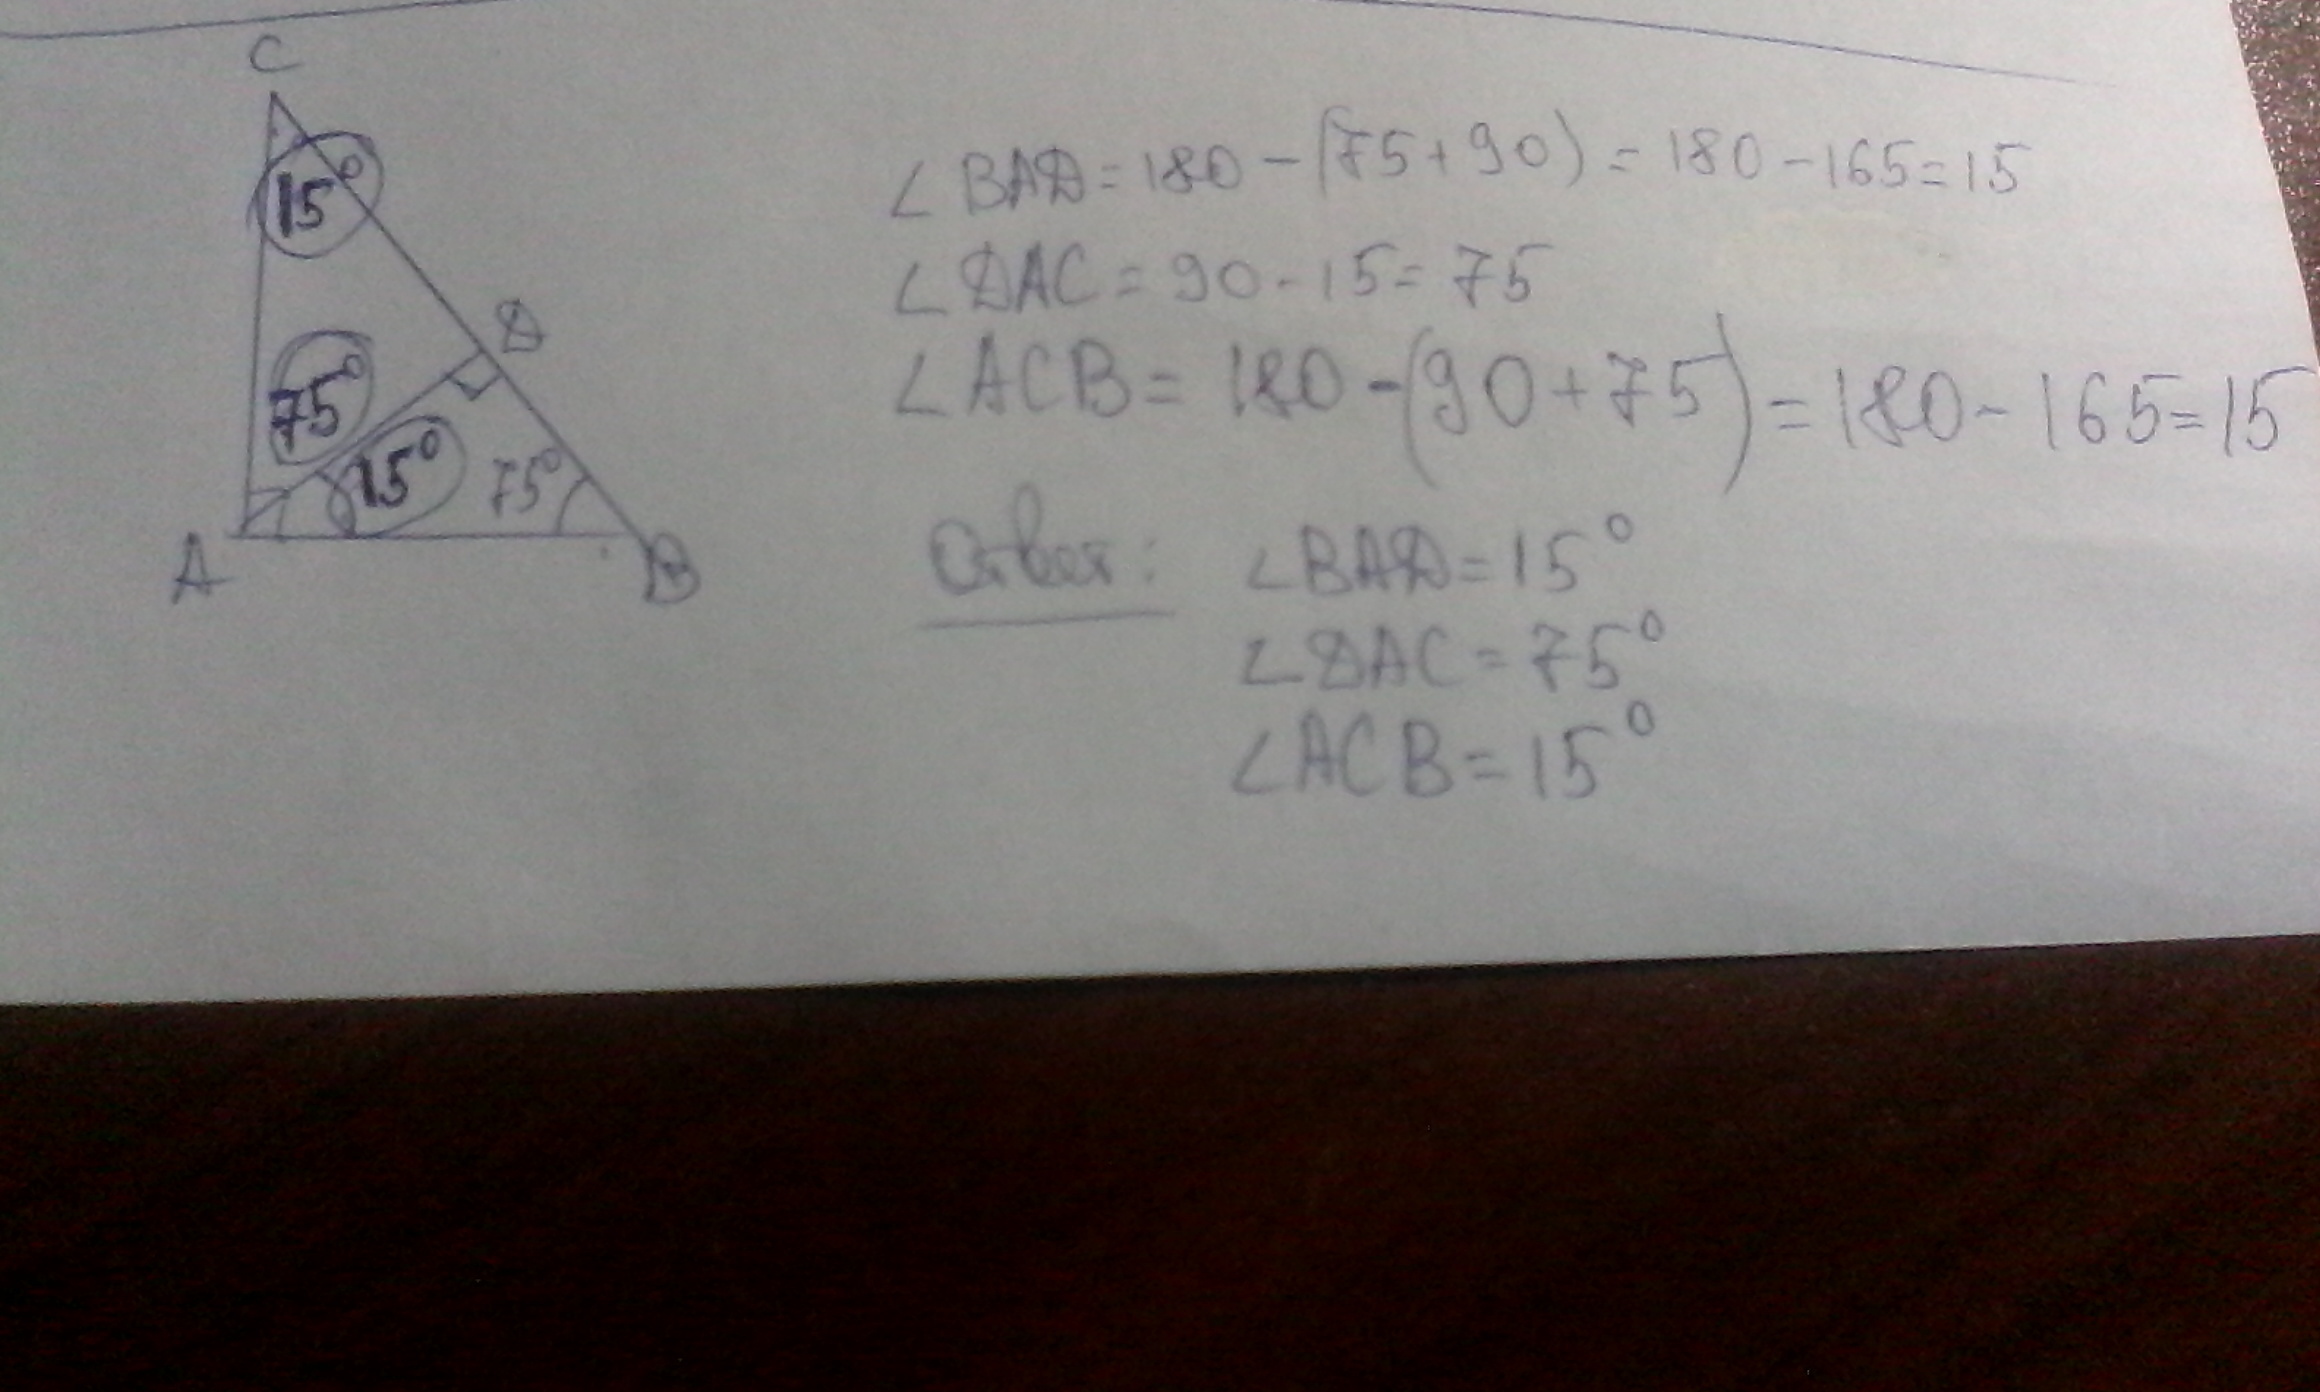 C
15°
D
75°
15°
75°
A
B
∠BAD=180-(75+90)=180-165=15
∠DAC=90-15=75
∠ACB=180-(90+75)=180-165=15
Ответ: ∠BAD=15°
∠DAC=75°
∠ACB=15°